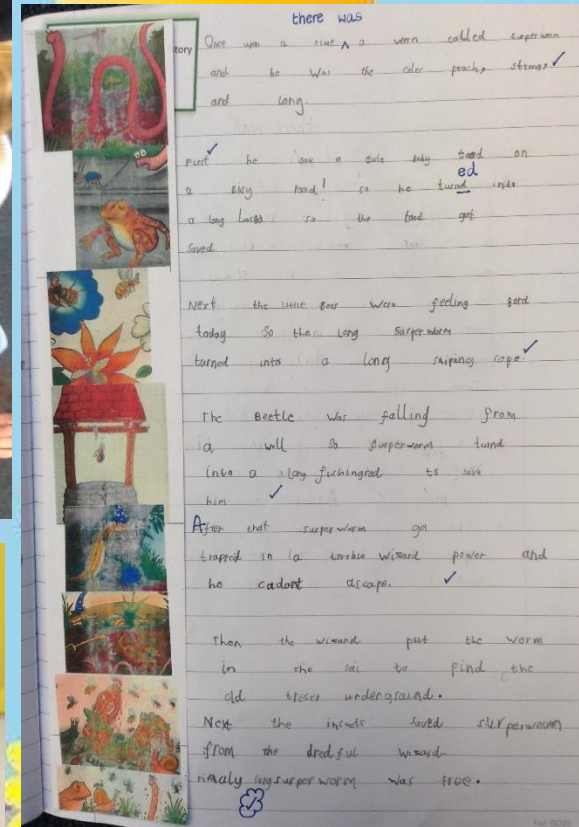 there was
tory
Once upon a time ^ a worm called surperworm
and he was the coler peach, strong,
and long.
First he saw a cute baby toad on
ed
a bisy road! so he turnd into
a long Lasso so the toad got
saved.
Next the little Bees were feeling bord
today so the long surperworm
turned into a long skipping rope.
The Beetle was falling from
a will so surperworm turnd
into a long fishingrod to save
him.
After that surperworm got
trapped in a torable wizard power and
he cadant ascape.
Then the wizand put the worm
in the soi to find the
old treser underground.
Next the insets saved surperworm
from the dredful wizard.
Finaly long surperworm was free.